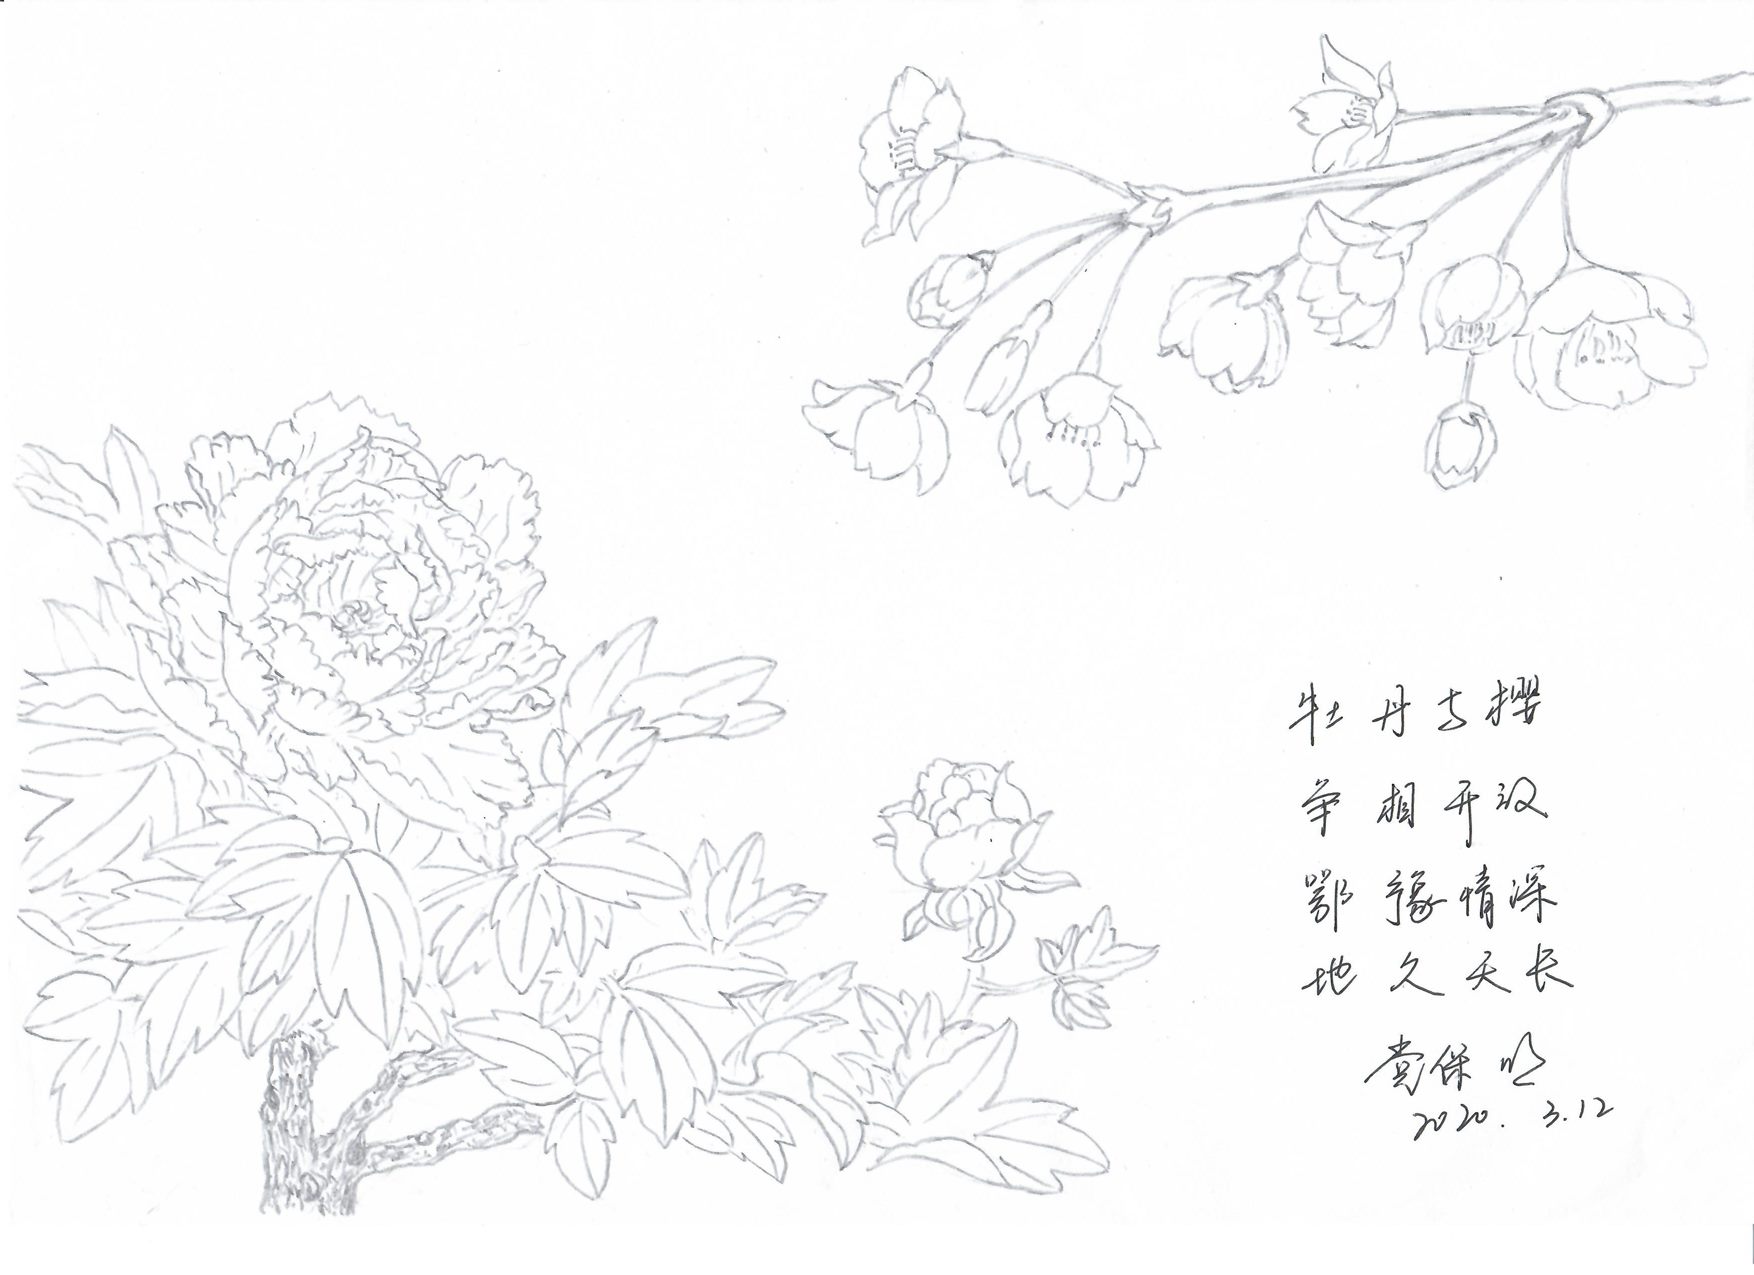 牡丹与樱
争相开放
鄂豫情深
地久天长
党保明
2020.3.12